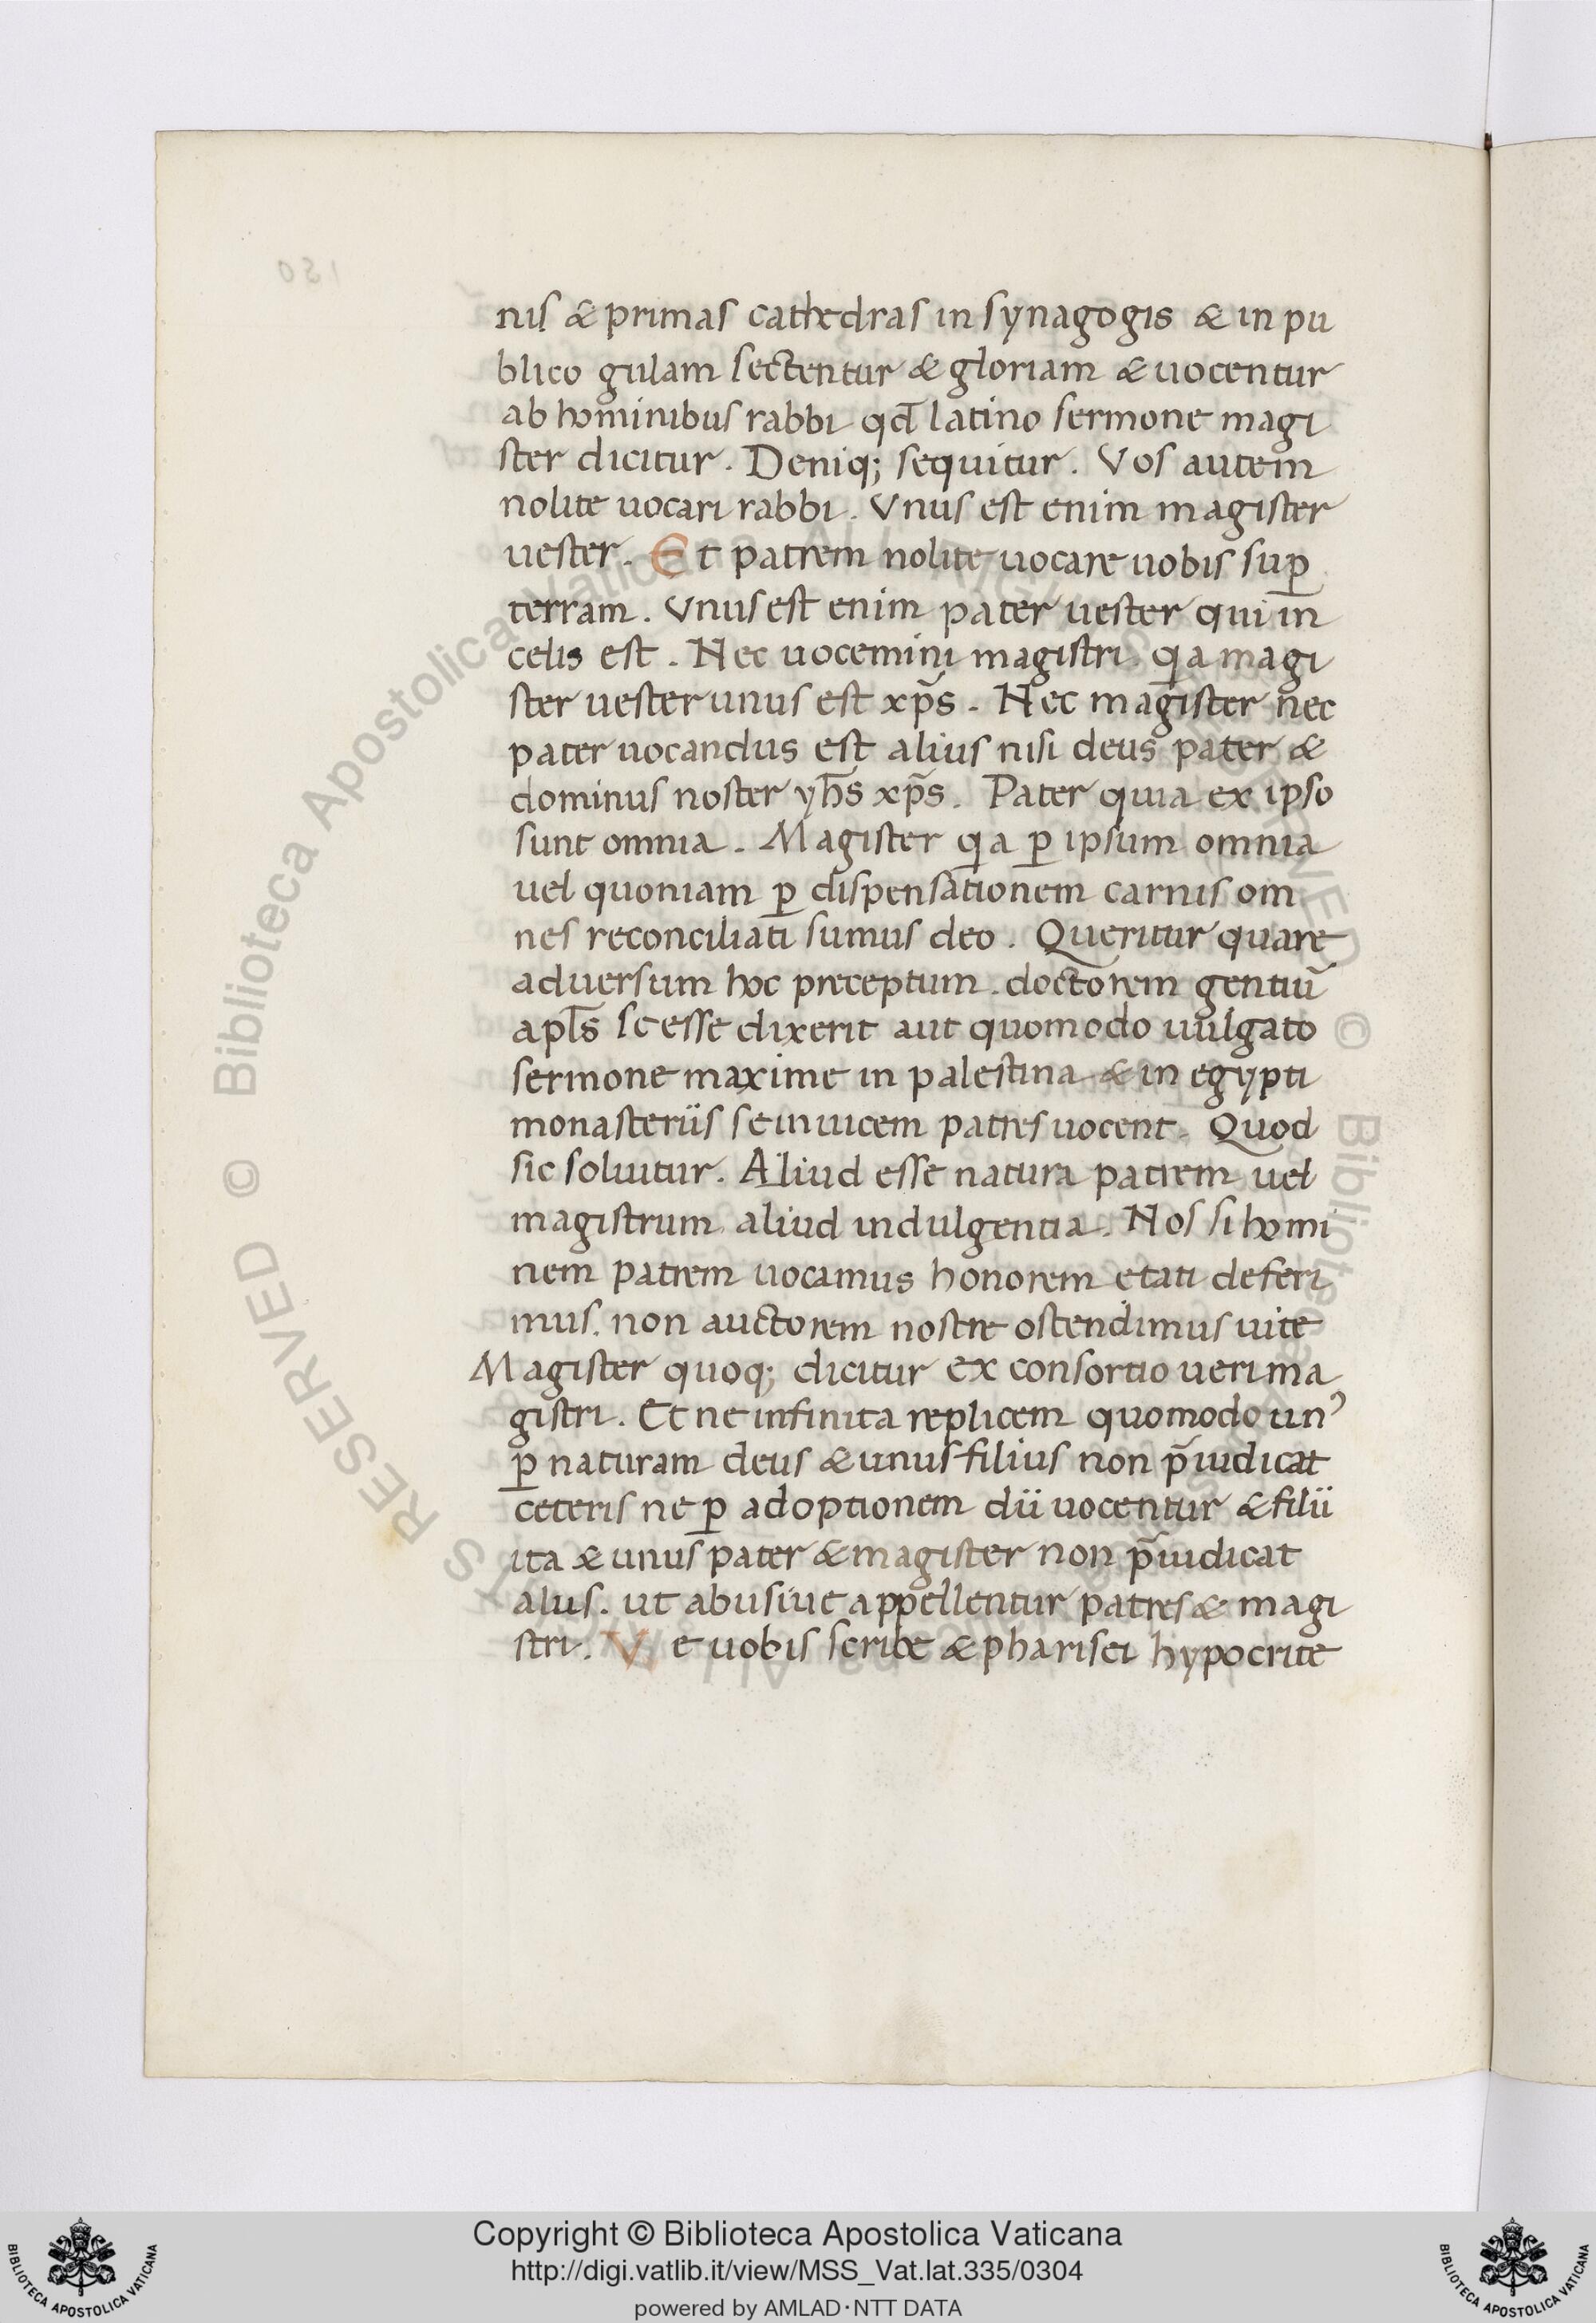 nis & primas cathedras in synagogis & in pu
blico gulam sectentur & gloriam & uocentur
ab hominibus rabbi qđ latino sermone magi
ster dicitur. Deniq; sequitur. Vos autem
nolite uocari rabbi. Vnus est enim magister
uester. Et patrem nolite uocare uobis suꝑ
terram. Vnus est enim pater uester qui in
celis est. Nec uocemini magistri. qa magi
ster uester unus est xp̃s. Nec magister nec
pater uocandus est alius nisi deus pater &
dominus noster yh̃s xp̃s. Pater quia ex ipso
sunt omnia. Magister qa ꝑ ipsum omnia
uel quoniam ꝑ dispensationem carnis om
nes reconciliati sumus deo. Queritur quare
aduersum hoc preceptum. doctorem gentiū
apl̃s se esse dixerit aut quomodo uulgato
sermone maxime in palestina & in egypti
monasteriis se inuicem patres uocent. Quod
sic soluitur. Aliud esse natura patrem uel
magistrum aliud indulgentia. Nos si homi
nem patrem uocamus honorem etati deferi
mus. non auctorem nostre ostendimus uite
Magister quoq; dicitur ex consortio ueri ma
gistri. Et ne infinita replicem quomodo unꝰ
ꝑ naturam deus & unus filius non p̃iudicat
ceteris ne ꝑ adoptionem dii uocentur & filii
ita & unus pater & magister non p̃iudicat
aliis. ut abusiue appellentur patres & magi
stri. Ve uobis scribe & pharisei hypocrite
© Biblioteca Apostolica Vaticana
RESERVED
Copyright © Biblioteca Apostolica Vaticana
http://digi.vatlib.it/view/MSS_Vat.lat.335/0304
powered by AMLAD·NTT DATA
BIBLIOTECA APOSTOLICA VATICANA
BIBLIOTECA APOSTOLICA VATICANA